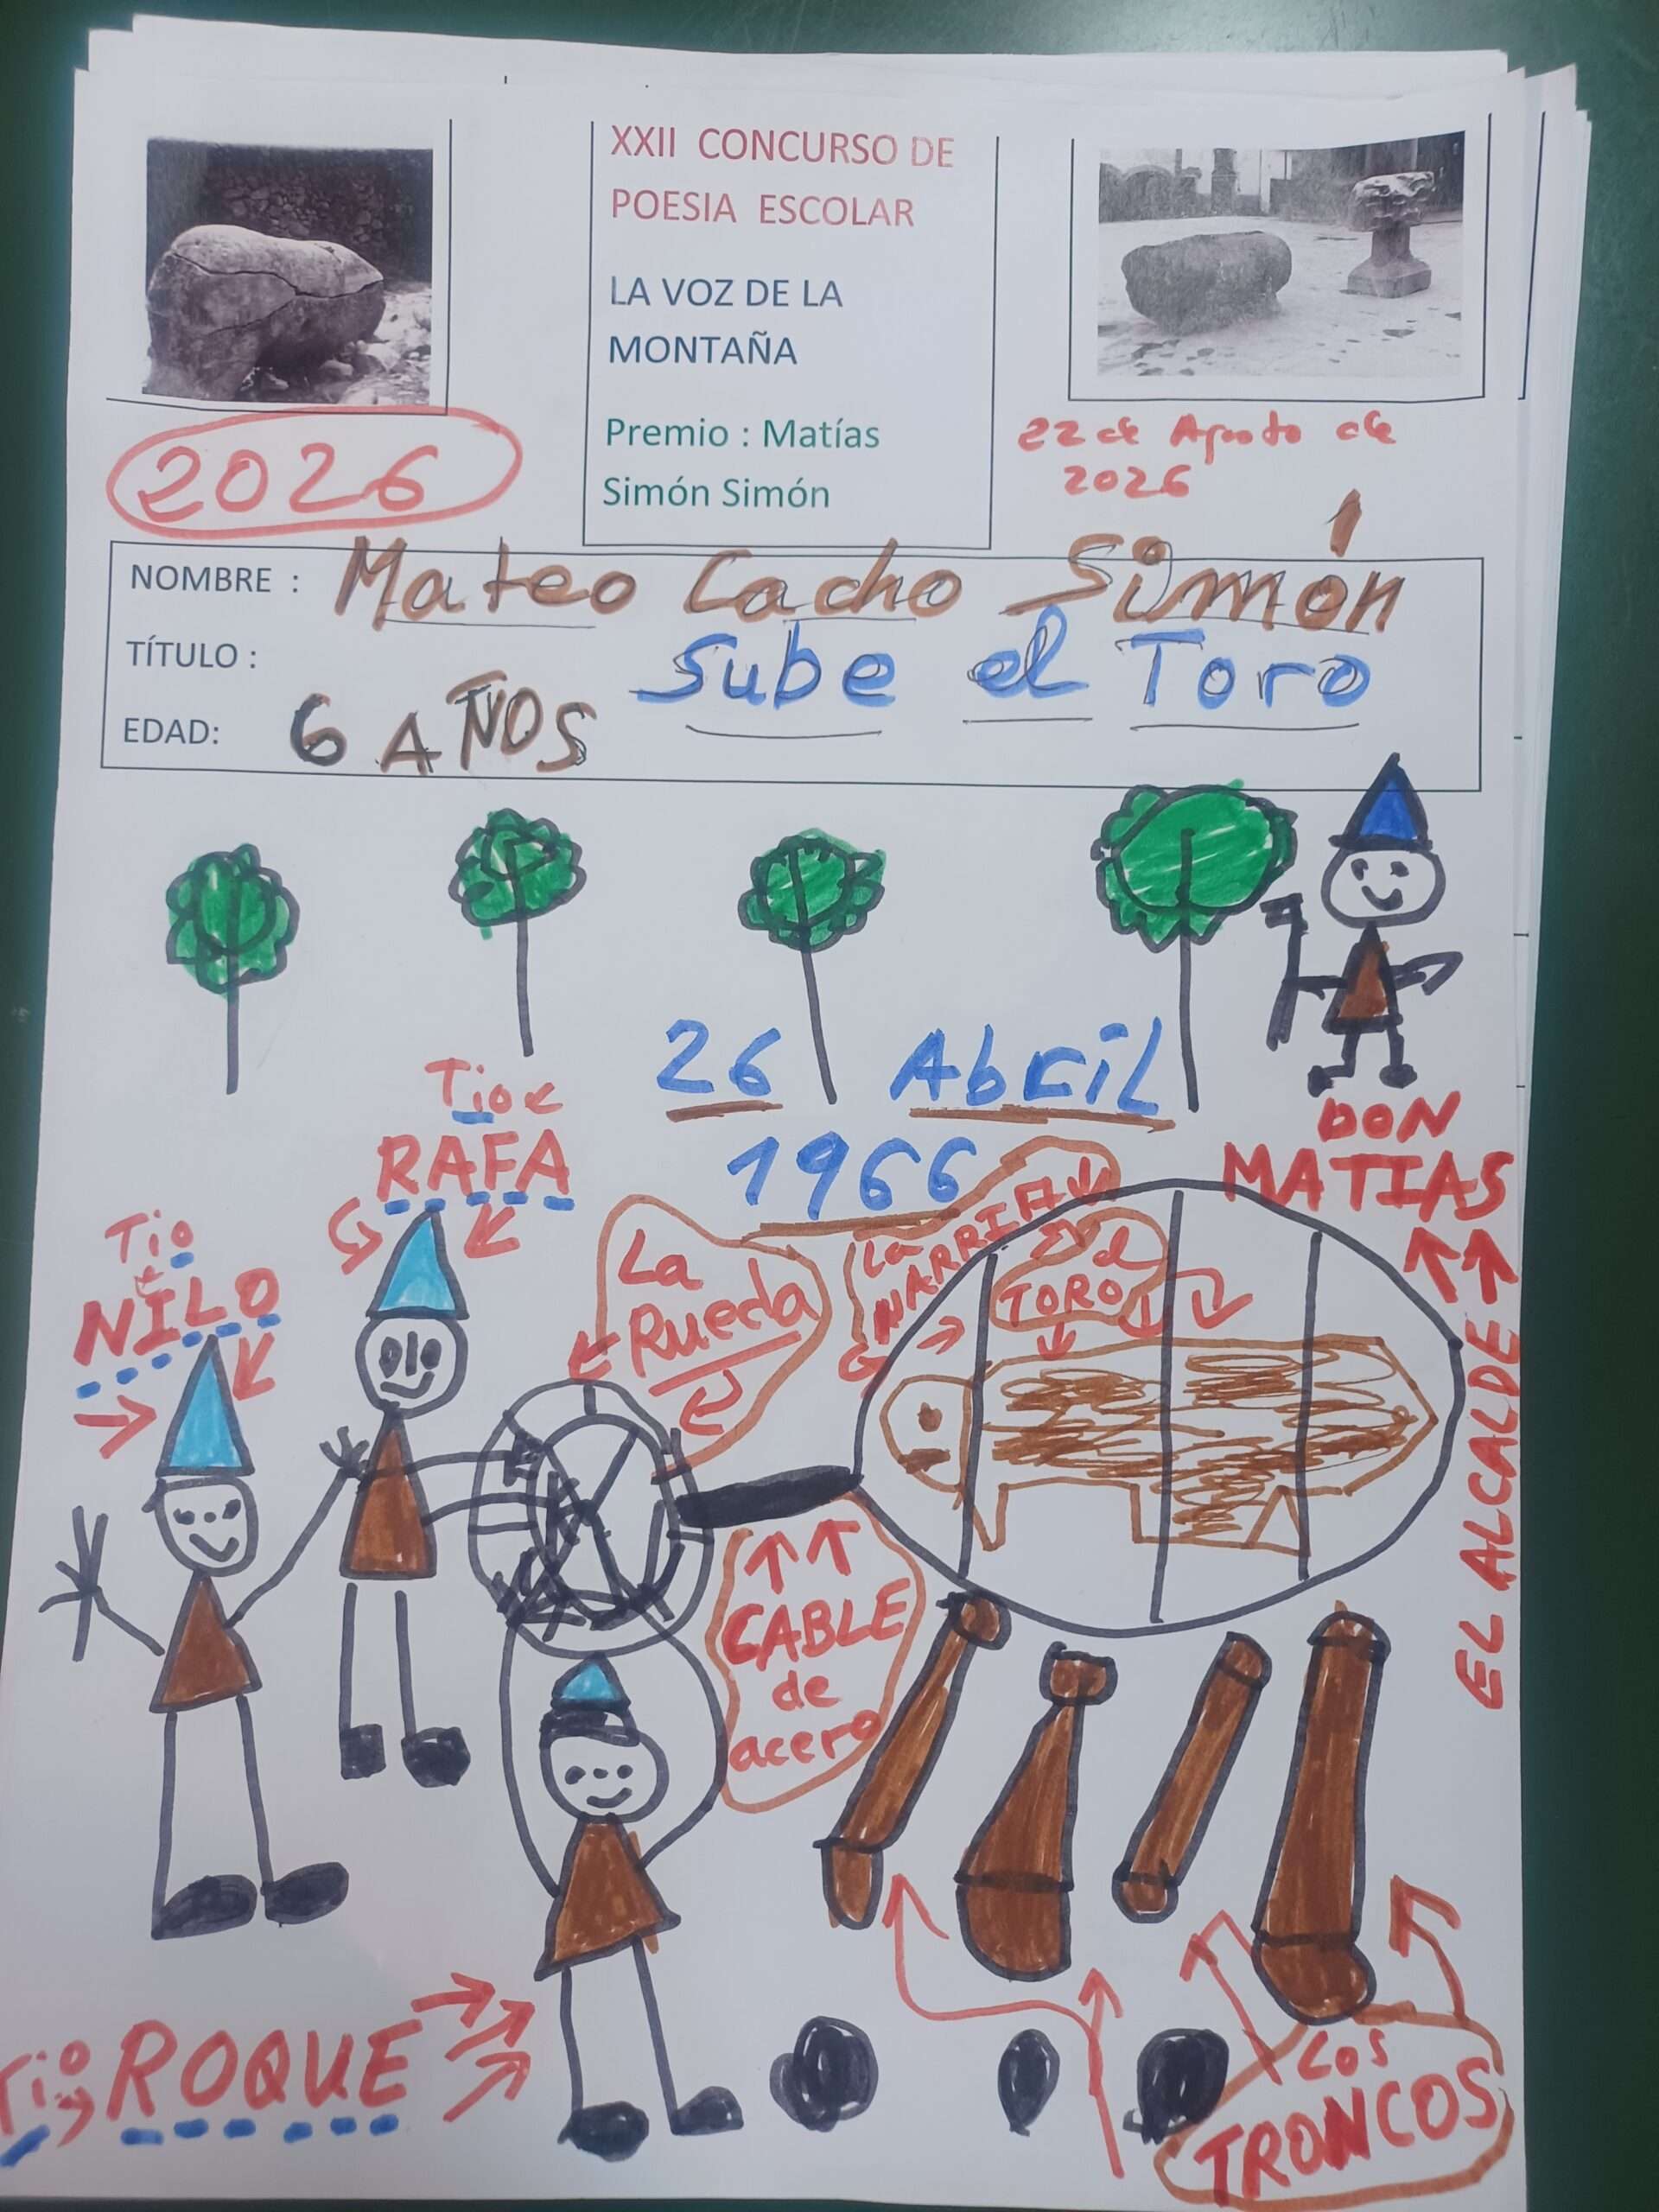 XXII CONCURSO DE
POESIA ESCOLAR
LA VOZ DE LA
MONTAÑA
Premio : Matías
Simón Simón
2026
22 de Agosto de
2026
NOMBRE : Mateo Cacho Simón
TÍTULO : Sube el Toro
EDAD: 6 AÑOS
26 Abril
1966
DON
MATIAS
EL ALCALDE
Tio
RAFA
Tio
NILO
La
Rueda
La
NARRIA
El
TORO
CABLE
de
acero
Tio
ROQUE
Los
TRONCOS